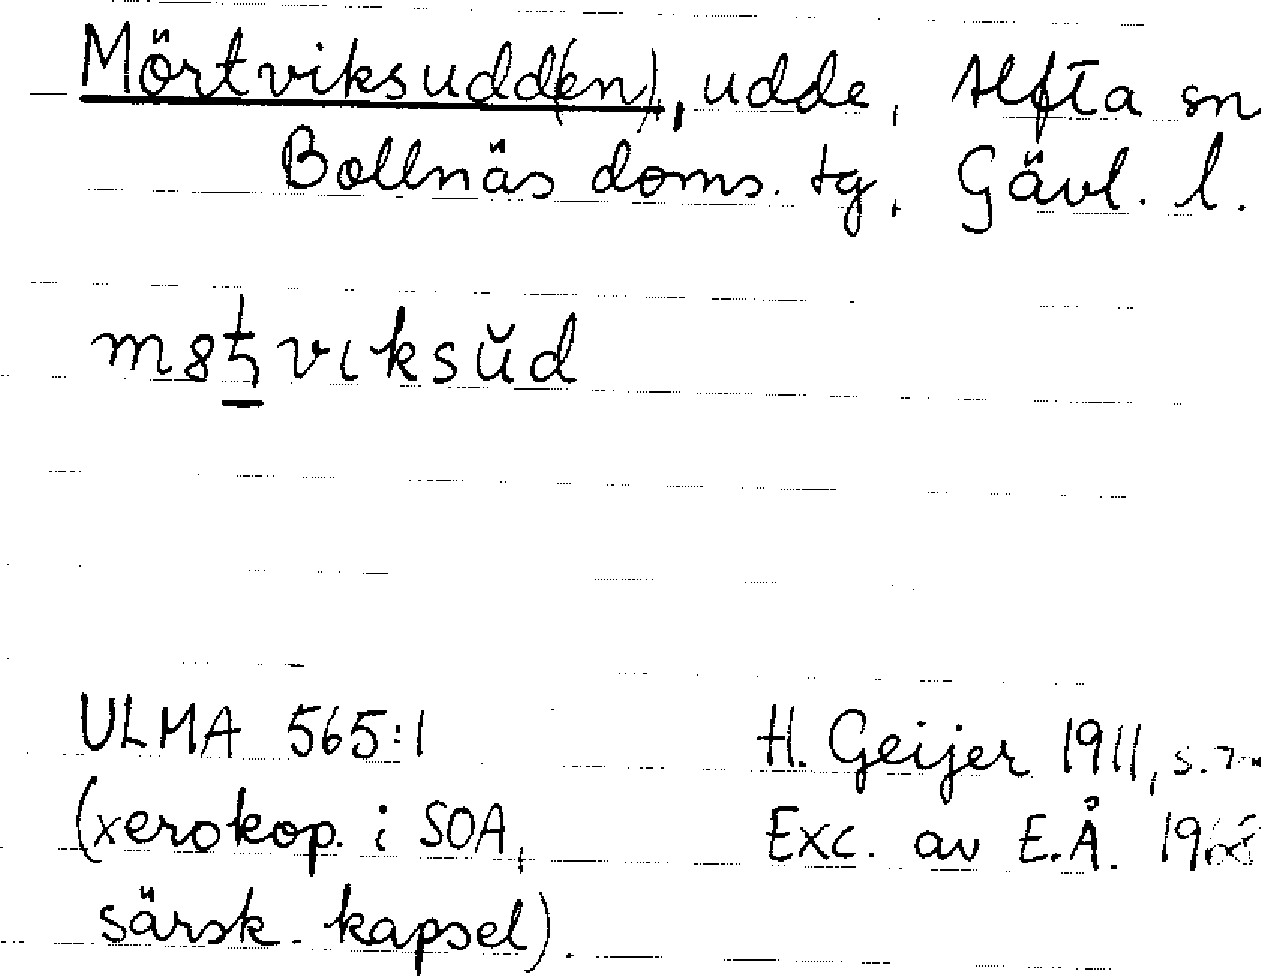 Mörtviksudd(en), udde, Alfta sn
Bollnäs doms. tg, Gävl. l.
viksŭd
ULMA 565:1
H. Geijer 1911, s. 7
(xerokop. i SOA,
Exc. av E.Å.
särsk. kapsel).